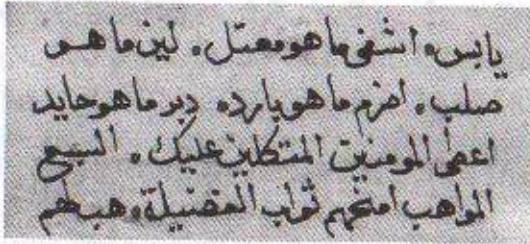 يابس. اشفى ما هو معتل. لين ما هو
صلب. اضرم ما هو بارد. دبر ما هو حايد
اعطى المومنين المتكلين عليك. السبع
المواهب امنحهم ثواب الفضيلة. هب لهم